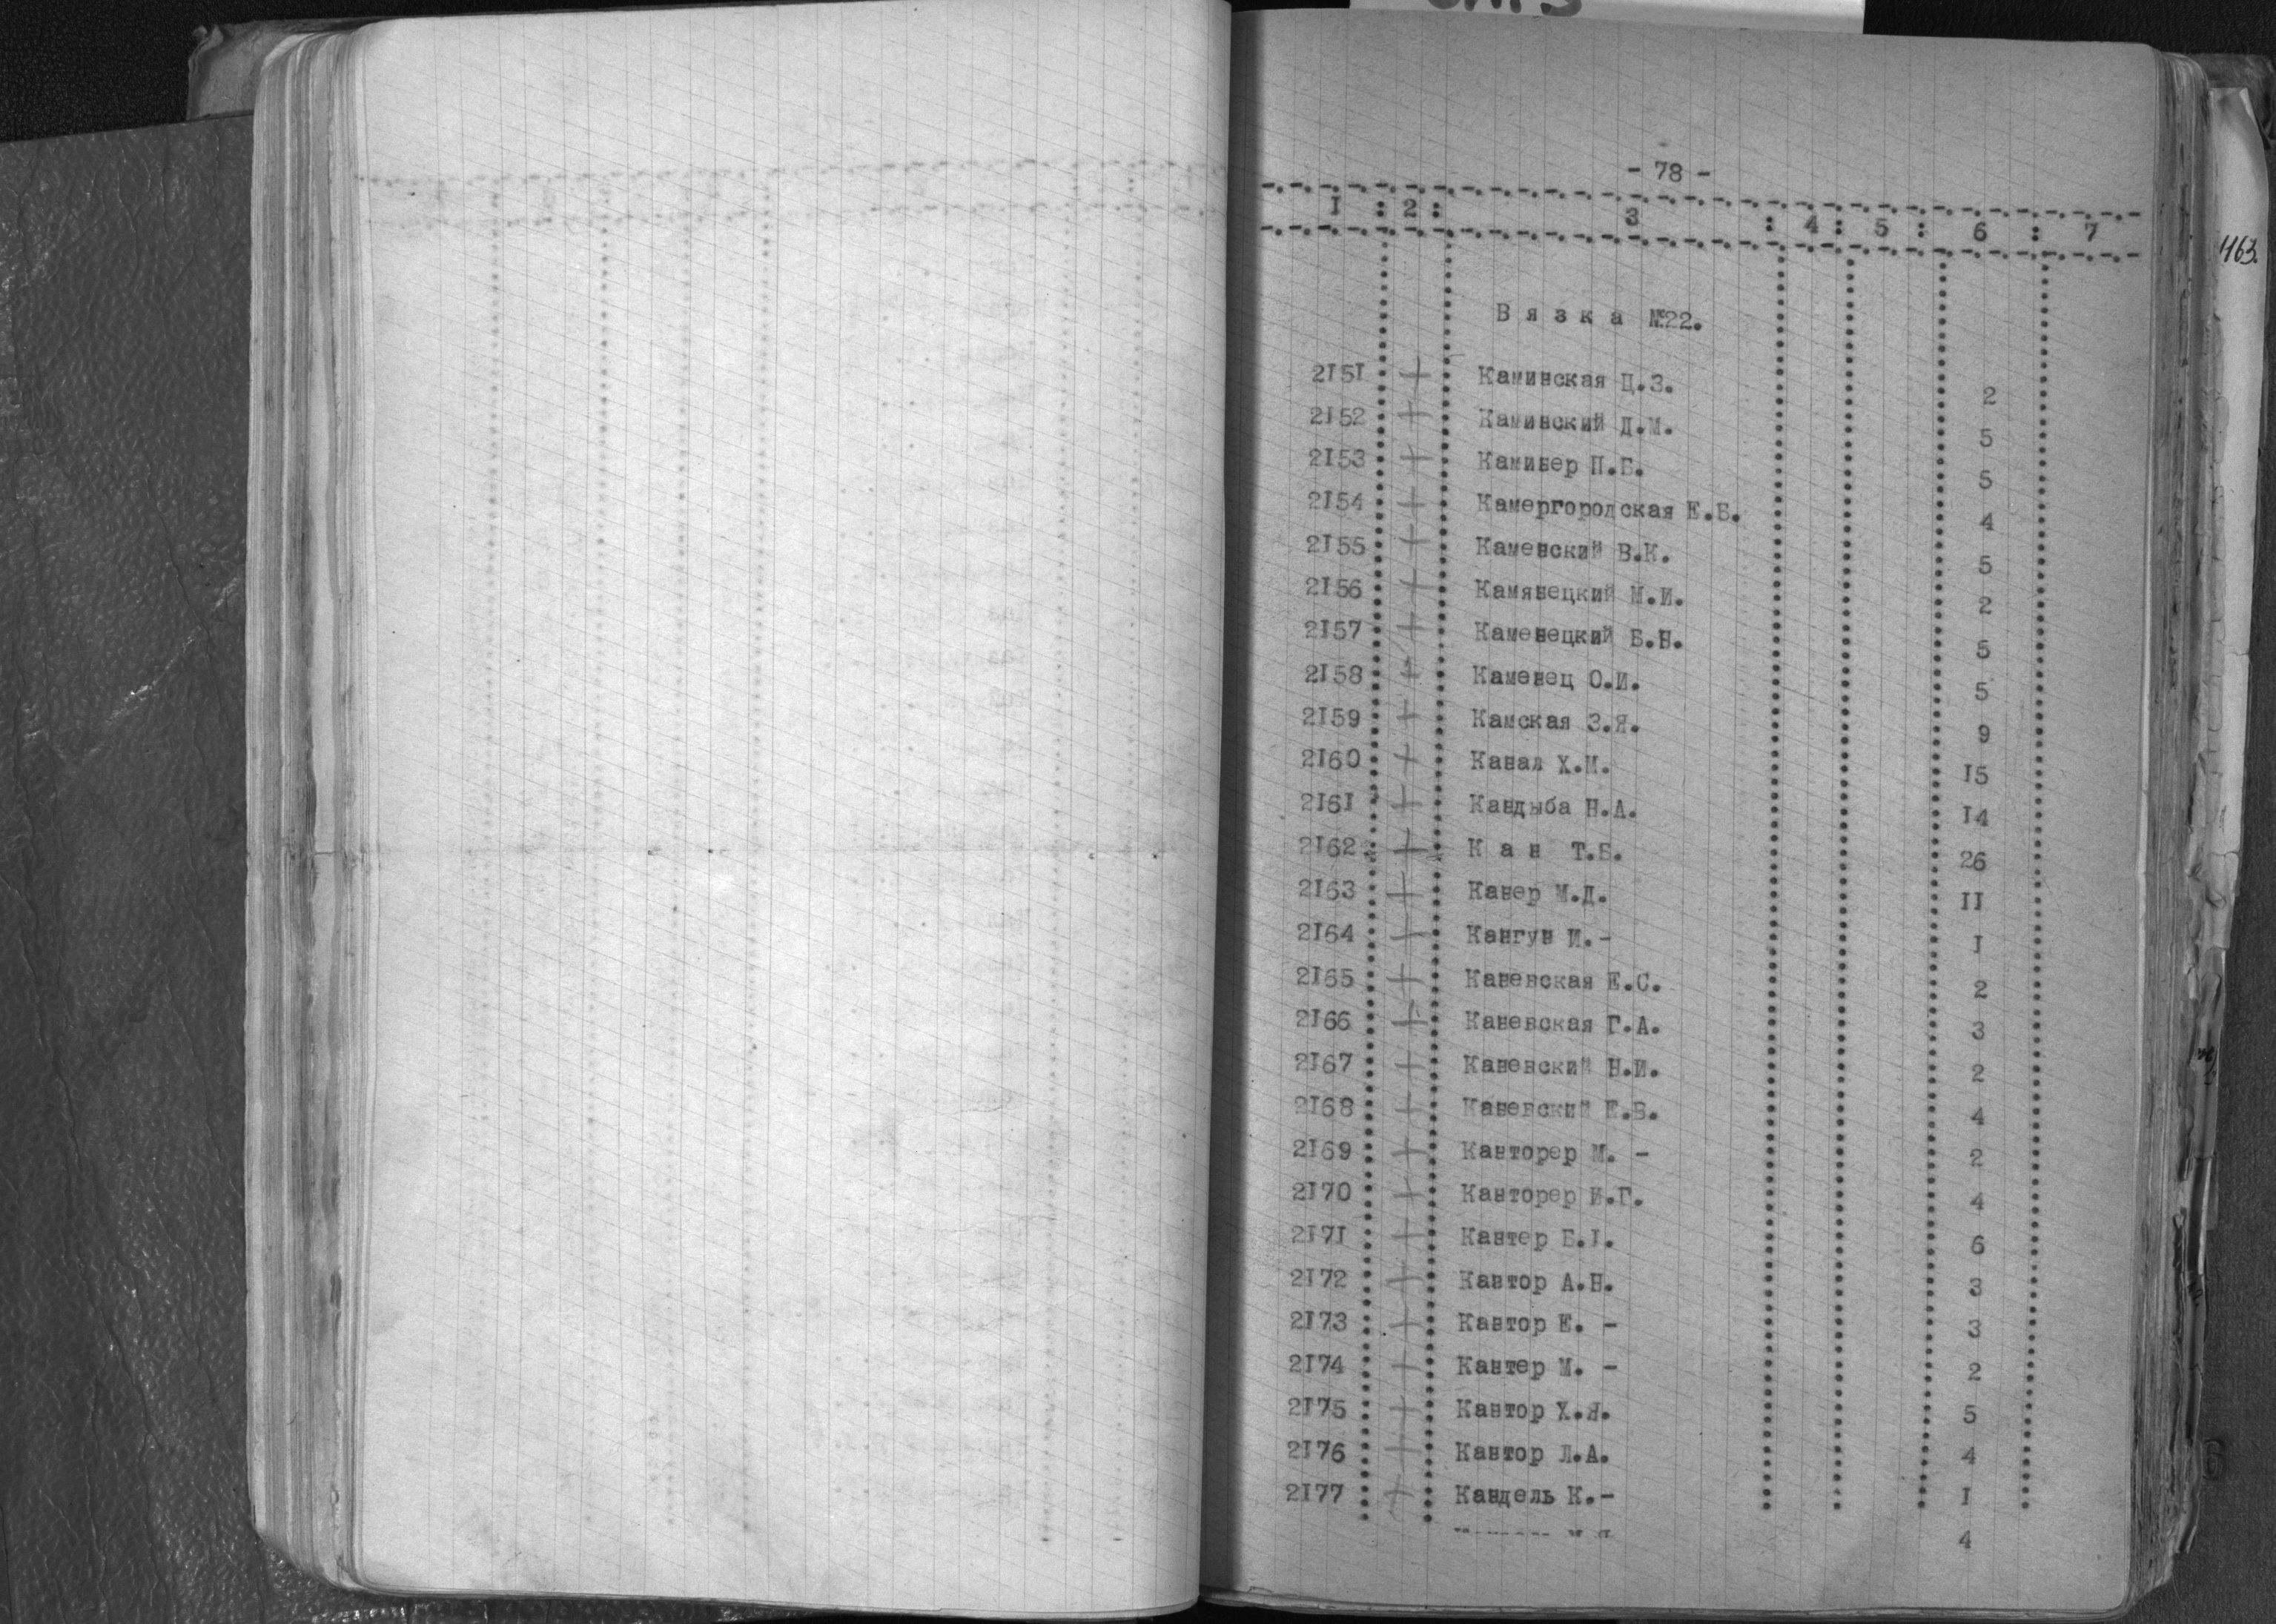 - 78 -
I : 2 : 3 : 4 : 5 : 6 : 7
4163.
Вязка №22.
2I5I + Каминская Ц.З. 2
2I52 + Каминский Д.М. 5
2I53 + Каминер П.Б. 5
2I54 + Камергородская Е.Б. 4
2I55 + Каменский В.К. 5
2I56 + Камянецкий М.И. 2
2I57 + Каменецкий Б.Н. 5
2I58 + Каменец О.И. 5
2I59 + Камская З.Я. 9
2I60 + Канал Х.М. I5
2I6I + Кандыба Н.А. I4
2I62 + Кан Т.Б. 26
2I63 + Канер М.Д. II
2I64 + Кангун И.- I
2I65 + Каневская Е.С. 2
2I66 + Каневская Г.А. 3
2I67 + Каневский Н.И. 2
2I68 + Каневский Е.В. 4
2I69 + Канторер М. - 2
2I70 + Канторер И.Г. 4
2I7I + Кантер Б.I. 6
2I72 + Кантор А.Н. 3
2I73 + Кантор Е. - 3
2I74 + Кантер М. - 2
2I75 + Кантор Х.Я. 5
2I76 + Кантор Л.А. 4
2I77 + Кандель К.- I
4